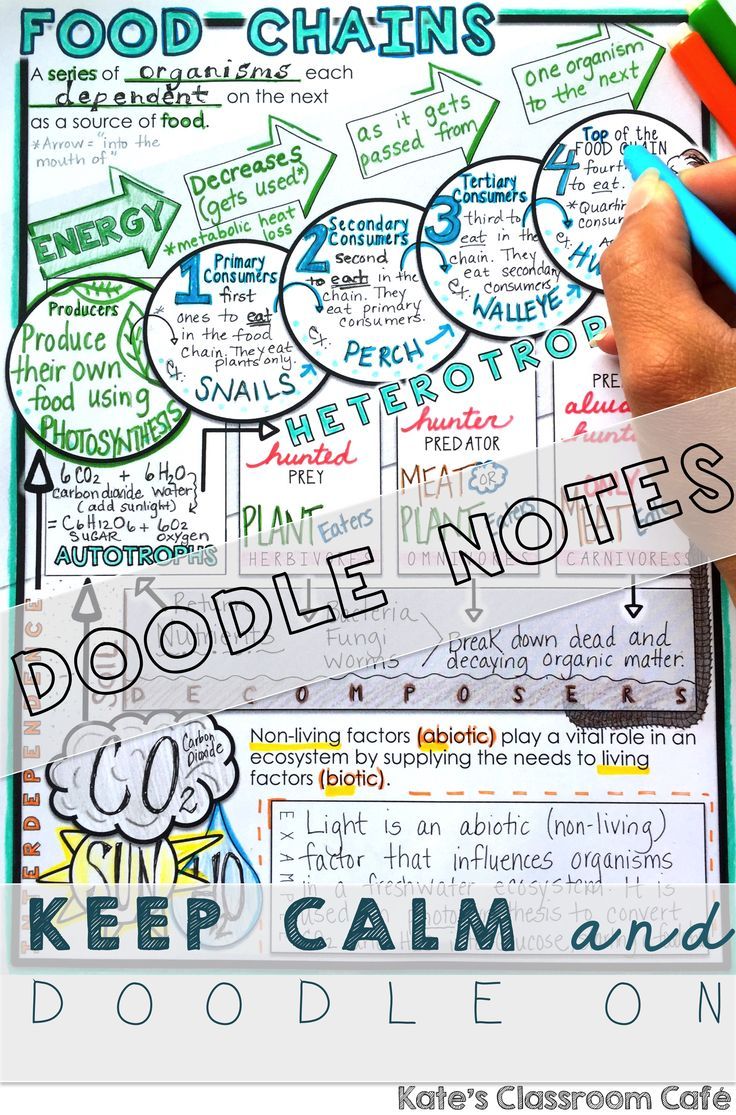 FOOD CHAINS
A series of organisms each
dependent on the next
as a source of food.
*Arrow = "into the
mouth of"
ENERGY
Decreases
(gets used*)
*metabolic heat
loss
as it gets
passed from
one organism
to the next
Producers
Produce
their own
food using
PHOTOSYNTHESIS
1 Primary
Consumers
first
ones to eat
in the food
chain. They eat
plants only.
ex.
SNAILS
2 Secondary
Consumers
second
to each in the
chain. They
eat primary
consumers.
ex.
PERCH
3 Tertiary
Consumers
third to
eat in the
chain. They
eat secondary
consumers
ex.
WALLEYE
4 Top of the
FOOD CHAIN
to eat.
ex.
HETEROTROP
6CO2 + 6H2O
carbon dioxide water
(add sunlight)
= C6H12O6 + 6O2
SUGAR oxygen
AUTOTROPHS
hunted
PREY
PLANT Eaters
HERBIVORES
hunter
PREDATOR
MEAT OR
PLANT Eaters
OMNIVORES
PRE
MEAT
CARNIVORESS
DOODLE NOTES
Return
Nutrients
Bacteria
Fungi
Worms
Break down dead and
decaying organic matter.
DECOMPOSERS
INTERDEPENDENCE
CO2 Carbon
Dioxide
SUN
H2O
Non-living factors (abiotic) play a vital role in an
ecosystem by supplying the needs to living
factors (biotic).
Light is an abiotic (non-living)
factor that influences organisms
in a freshwater ecosystem. It is
used in photosynthesis to convert
KEEP CALM and
DOODLE ON
Kate's Classroom Café